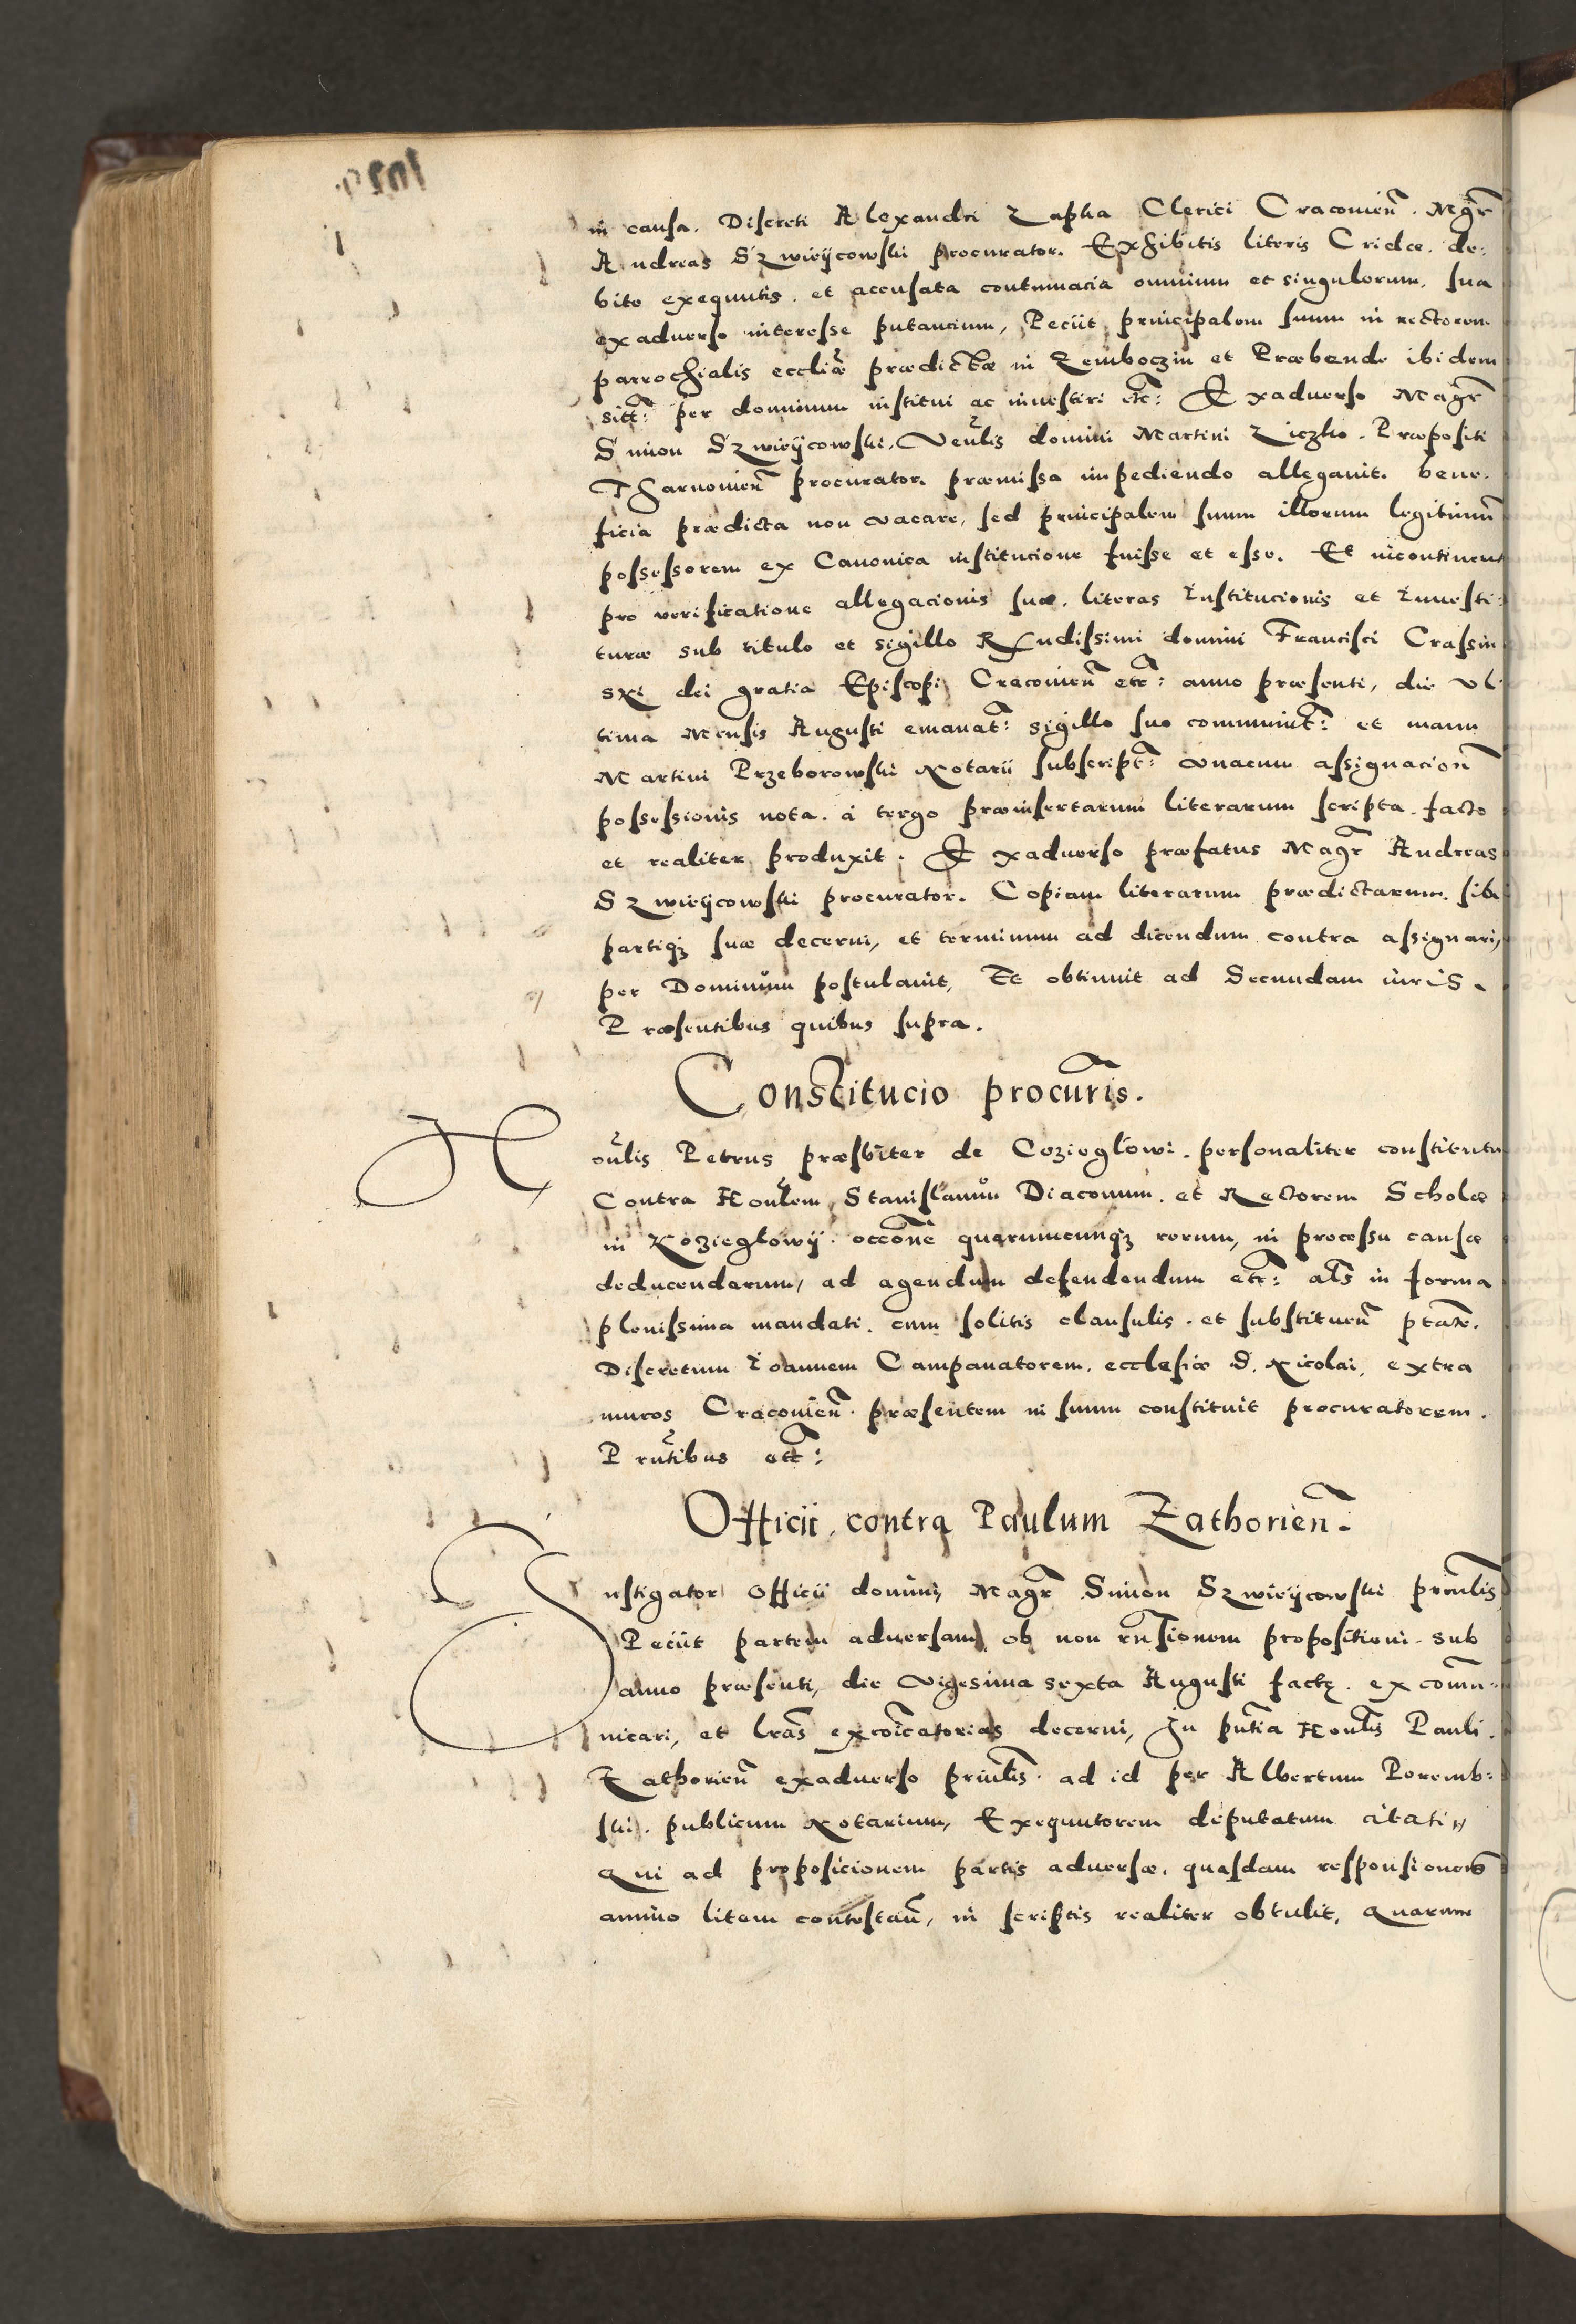 in causa. Discreti Alexandri Zapka Clerici Cracovien̄. Mgr̄
Andreas Szwirÿcowski procurator. Exhibitis literis Cridæ. de:
bite exequutis. et accusata contumacia omnium et singulorum, sua
exadverso interesse putancium, Peciit principalem suum in rectorem
parrochialis eccliæ prædictæ in Zemboczin et Præbende ibidem
sitt: per dominum institui ac investiri etc: Exadverso Magr̄
Simon Szwirÿcowski. Venlis domini Martini Ziezko. Præpositi
Tharnovien̄ procurator. præmissa impediendo allegavit. bene:
ficia prædicta non vacare, sed principalem suum illorum legitimū
possessorem ex Canonica institucione fuisse et esse. Et incontinent
pro verificatione allegacionis suæ. literas Institucionis et Investi:
turæ sub titulo et sigillo Rndissimi domini Francisci Crassin
sxi dei gratia Episcopi Cracovien̄ etc: anno præsenti, die vl:
tima Mensis Augusti emanat: sigillo suo communit: et manu
Martini Przeborowski Notarii subscript: vnacum assignacion̄
possessionis nota. à tergo præinsertarum literarum scripta. facto
et realiter produxit. Exadverso præfatus Magr̄ Andreas
Szwirÿcowski procurator. Copiam literarum prædictarum. sibi
partiqz suæ decerni, et terminum ad dicendum contra assignari,
per Dominum postulavit, Et obtinuit ad Secundam iuris.
Præsentibus quibus supra.
Constitucio procūris.
Honlis Petrus præsbiter de Cozieglowi. personaliter constitutu
Contra Honlem Stanislaum Diaconum. et Rectorem Scholæ
in Kozieglowÿ. occōne quarumcunqz rerum, in processu causæ
deducendarum, ad agendum defendendum etc: als in forma
plenissima mandati. cum solitis clausulis. et substituen̄ ptate.
Discretum Ioannem Campanatorem. ecclesiæ S. Nicolai, extra
muros Cracovien̄. præsentem in suum constituit procuratorem.
Prntibus etc:
Officii contra Paulum Zathorien̄.
Instigator Officii domini, Magr̄ Simon Szwirÿcowski prinlis,
Peciit partem adversam ob non rnsionem propositioni. sub
anno præsenti, die vigesima sexta Augusti factę. excomu:
nicari, et lras excoicatorias decerni, In pntia Honlis Pauli.
Zathorien̄ exadverso prinlis. ad id per Albertum Poremb:
ski. publicum Notarium, Exequutorem deputatum citati,,
Qui ad proposicionem partis adversæ. quasdam responsiones
animo litem contestan̄, in scriptis realiter obtulit, Quarum